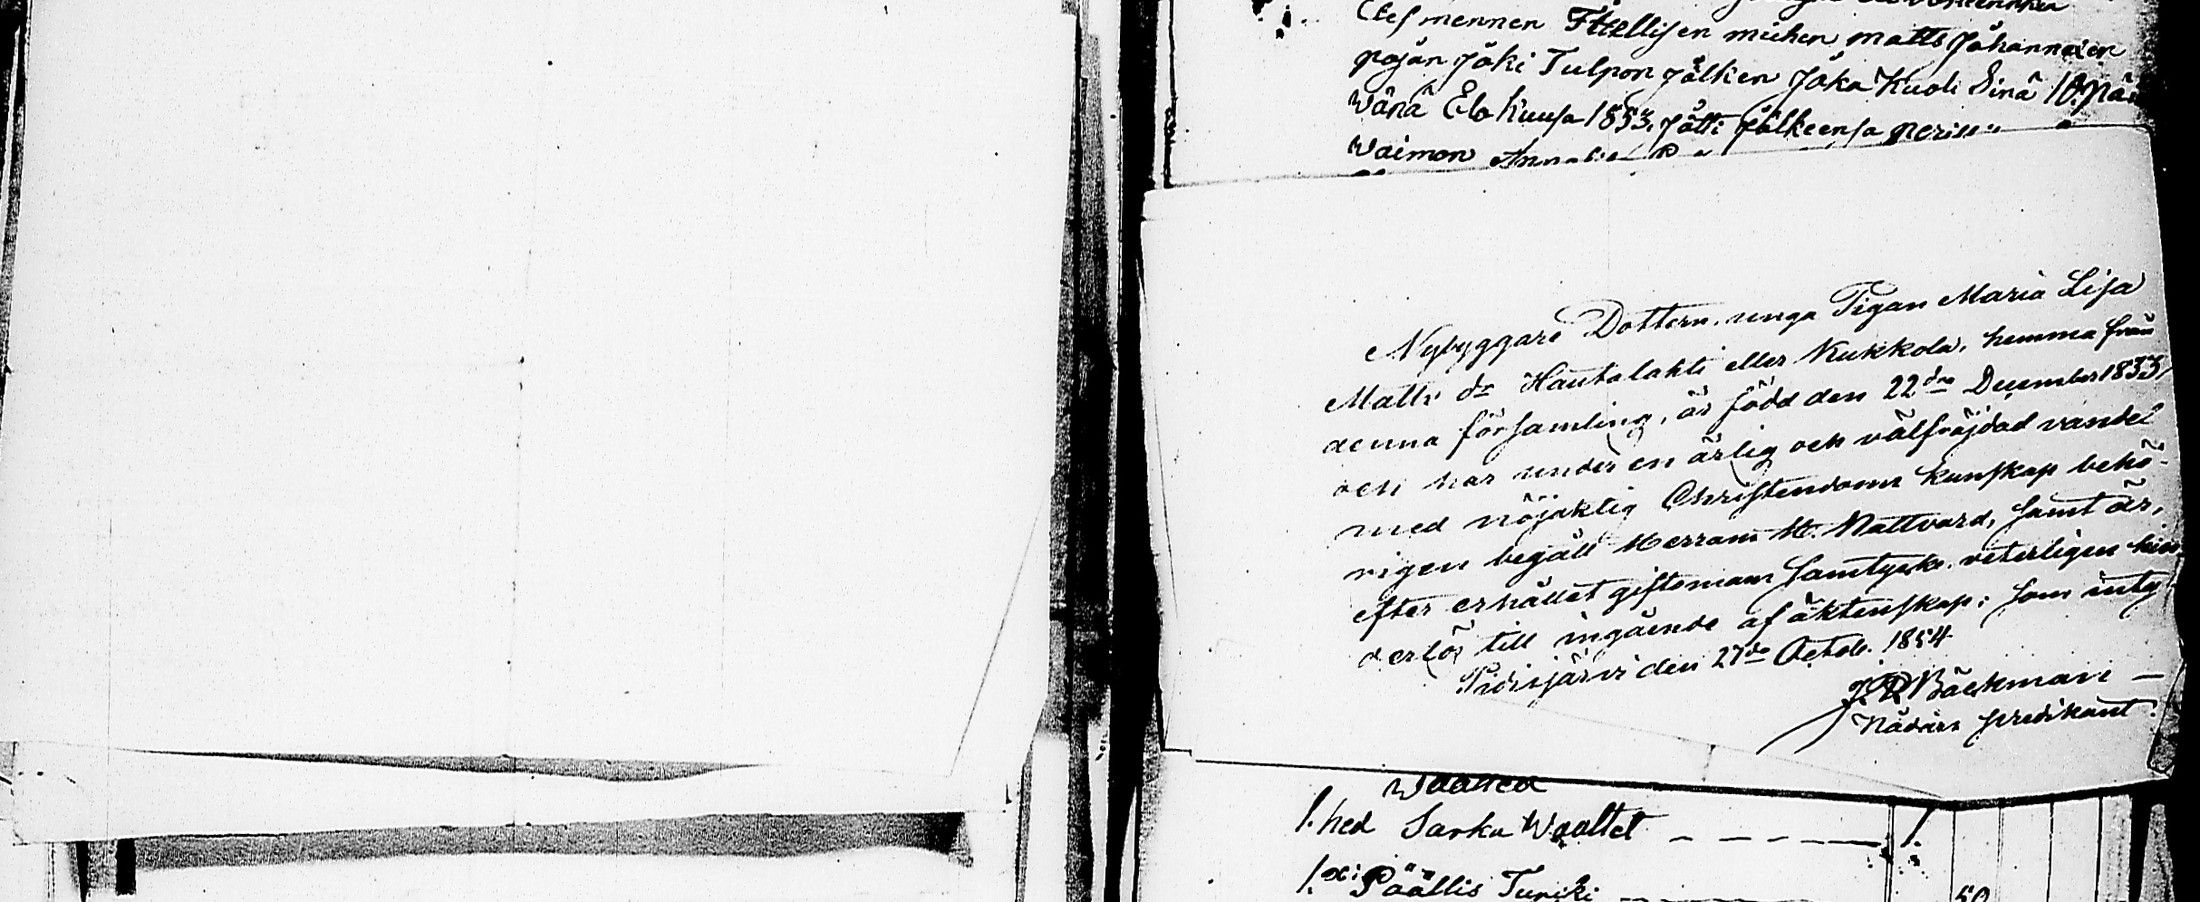 Edesmennen Ittellisen miehen matts Johannexen
pojan Joki Tulpon jälken Joka Kuoli Sinä 10. Päi
Wänä Elo Kuusa 1853. Jätti Jälkeensa
Waimon
Nybyggare Dottern, unga Pigan Maria Lisa
Matts dr Hautalahti eller Kukkola, hemma från
denna församling, är född den 22dra December 1833,
och har under en ärlig och välfräjdad vandel
med nöjaktig Christendoms kunskap behö-
rigen begått Herrans H. Nattvard, samt är,
efter erhållet giftomans samtycke, veterligen hin-
derlös till ingående af äktenskap; som intyg.
Pidisjärvi den 27de Octob. 1854
J. R. Bäckman
Nådårs predikant.
Waatteet
1. hed Sarka Waattet 1.
1. xi Päällis Turkki 50